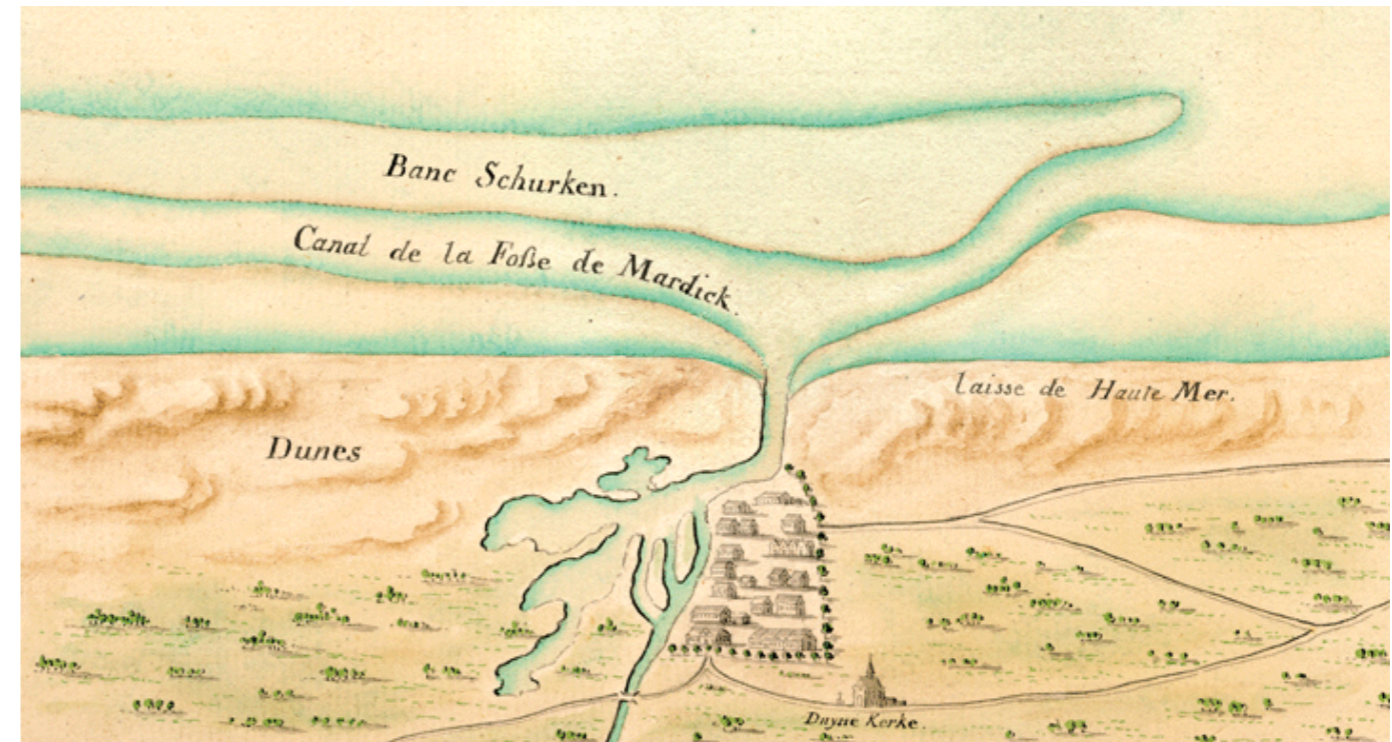 Banc Schurken.
Canal de la Foße de Mardick.
laisse de Haute Mer.
Dunes
Duyne Kerke.